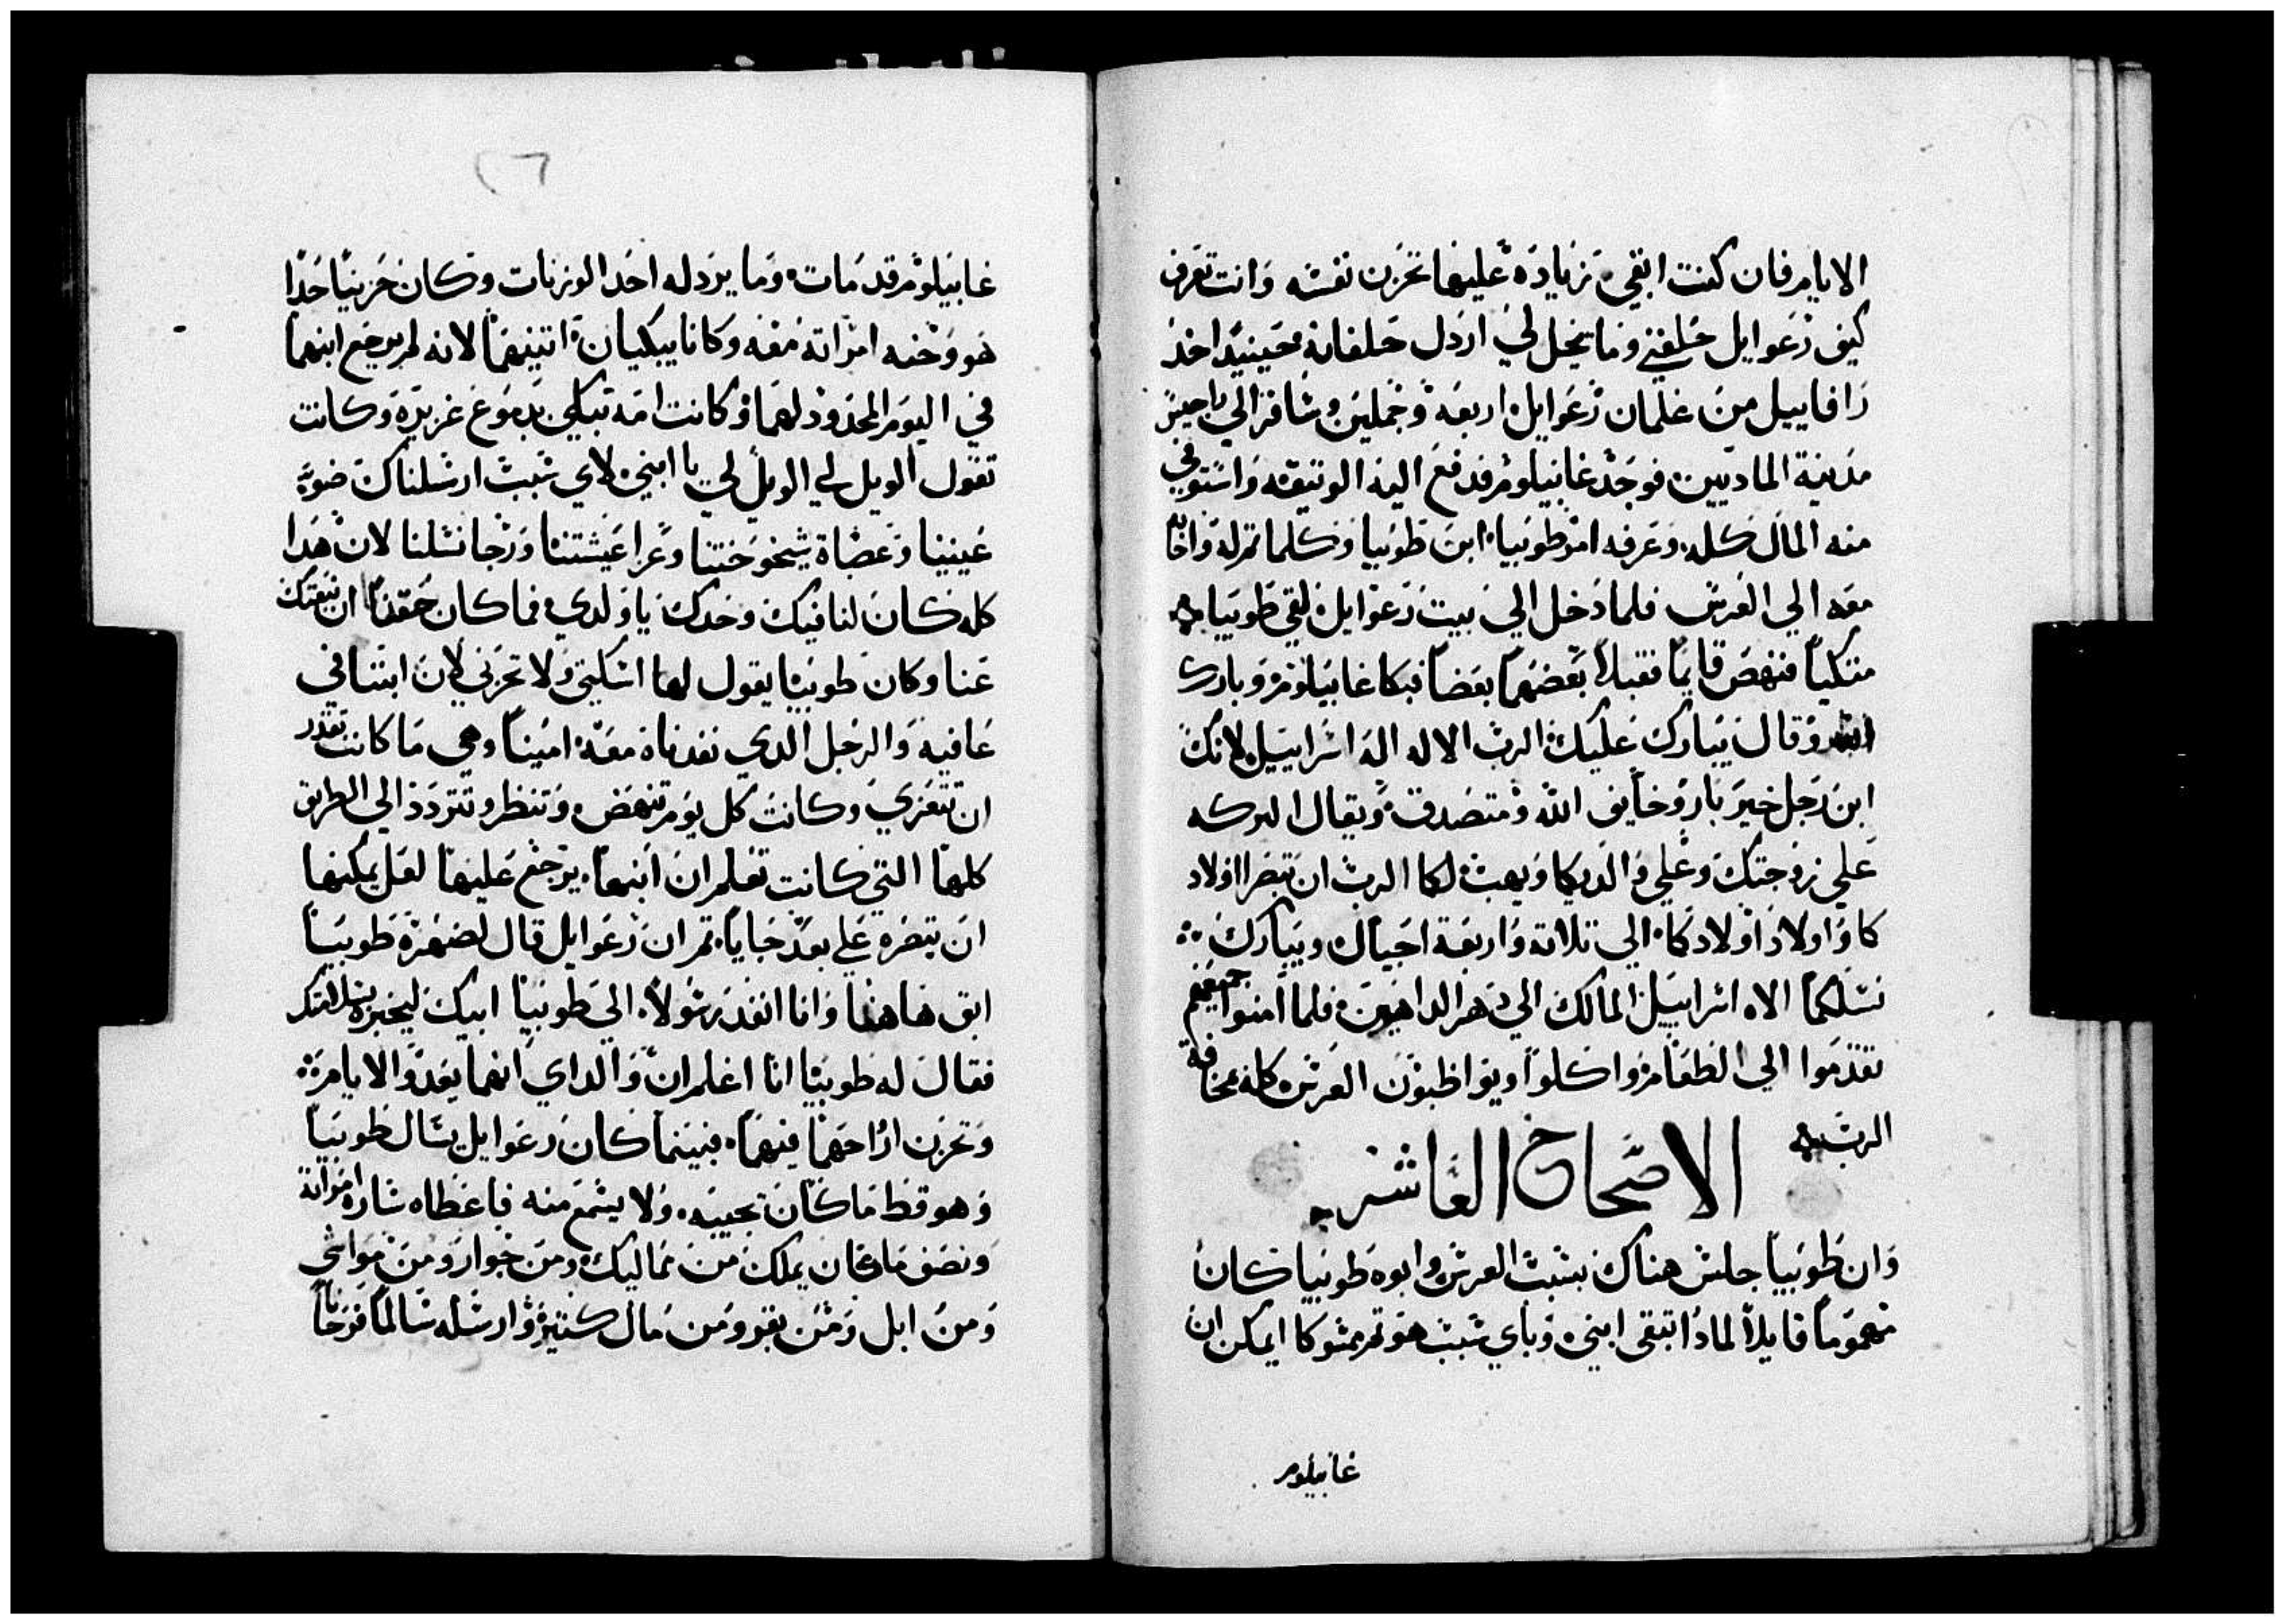 الايام فان كنت ابقي زيادة عليها تحزن نفسه وانت تعرف
كيف رعوايل حلفني وما يحل لي ارذل حلفانه فحينيذ اخذ
رافاييل من غلمان رعوايل اربعه وجملين وسافر الي راجيز
مدينة الماديين فوجد غابيلوم فدفع اليه الوتيقه واستوفي
منه المال كله وعرفه امر طوبيا ابن طوبيا وكلما تم له واخابه
معه الي العرس فلما دخل الي بيت رعوايل لقي طوبيا
متكيا فنهض قايما فقبلا بعضهما بعضا فبكا غابيلوم وبارك
الله وقال يبارك عليك الرب الاله اله اسراييل لانك
ابن رجل خير بار وخايف الله ومتصدق ويقال البركه
علي زوجتك وعلي والديكما ويهب لكما الرب ان تبصرا اولاد
كما واولاد اولادكما الي تلاتة واربعة اجيال ويبارك
نسلكما الاه اسراييل المالك الي دهر الداهرين فلما امنوا جميعهم
تقدموا الي الطعام واكلوا ويواظبون العرس كله بمخافة
الرب
الاصحاح العاشر
وان طوبيا جلس هناك بسبب العرس وابوه طوبيا كان
مهموما قايلا لماذا تبقى ابني وباي سبب هو تم ممسوكا ايمكن ان
غابيلوم
٢٦
غابيلوم قد مات وما يرد له احد الوزنات وكان حزينا جدا
هو وحنه امراته معه وكانا يبكيان اتنينهما لانه لم يرجع ابنهما
في اليوم المحدود لهما وكانت امه تبكي بدموع غزيرة وكانت
تقول الويل لي الويل لي يا ابني لاي سبب ارسلناك ضوء
عينينا وعصاة شيخوختنا وعزا عيشتنا ورجا نسلنا لان هذا
كله كان لنا فيك وحدك يا ولدي فما كان حقنا ان نبعتك
عنا وكان طوبيا يقول لها اسكتي ولا تحزني لان ابننا في
عافيه والرجل الدي نفدناه معه امينا وهي ما كانت تقدر
ان تتعزي وكانت كل يوم تنهض وتنظر وتتردد الي الطريق
كلها التي كانت تعلم ان ابنها يرجع عليها لعل يمكنها
ان تبصره علي بعد جايا تم ان رعوايل قال لصهره طوبيا
ابق هاهنا وانا انفد رسولا الي طوبيا ابيك ليخبره بسلامتك
فقال له طوبيا انا اعلم ان والداي انهما يعدوا الايام
وتحزن ارواحهما فيهما فبينما كان رعوايل يسال طوبيا
وهو قط ما كان يجيبه ولا يسمع منه فاعطاه ساره امراته
ونصف ما كان يملك من مماليك ومن جوار ومن مواشي
ومن ابل ومن بقر ومن مال كتير وارسله سالما فرحانا